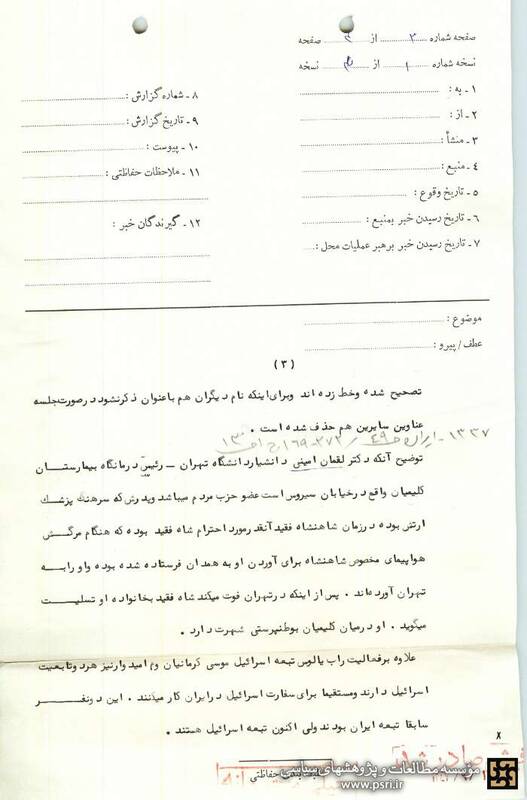 صفحه شماره ۳ از ۴ صفحه
نسخه شماره ۱ از نسخه
۱ - به :
۲ - از :
۳ - منشأ :
۴ - منبع :
۵ - تاریخ وقوع :
۶ - تاریخ رسیدن خبر بمنبع :
۷ - تاریخ رسیدن خبر برهبر عملیات محل :
۸ - شماره گزارش :
۹ - تاریخ گزارش :
۱۰ - پیوست :
۱۱ - ملاحظات حفاظتی :
۱۲ - گیرندگان خبر :
موضوع :
عطف / پیرو :
(۳)
تصحیح شده وخط زده اند وبرای اینکه نام دیگران هم باعنوان ذکرنشود درصورتجلسه
عناوین سایرین هم حذف شده است .
۱۳۳۷ - ایران
توضیح آنکه دکتر لقمان امینی دانشیار دانشگاه تهران - رئیس درمانگاه بیمارستان
کلیمیان واقع درخیابان سیروس است عضو حزب مردم میباشد وپدرش که سرهنگ پزشک
ارتش بوده درزمان شاهنشاه فقید آنقدر مورد احترام شاه فقید بوده که هنگام مرگش
هواپیمای مخصوص شاهنشاه برای آوردن او به همدان فرستاده شده بوده واو را به
تهران آورده اند . پس از اینکه درتهران فوت میکند شاه فقید بخانواده او تسلیت
میگوید . او درمیان کلیمیان بوطنپرستی شهرت دارد .
علاوه برفعالیت راب یالوس تبعه اسرائیل موسی کرمانیان وم امیدوار نیز هردو تابعیت
اسرائیل دارند ومستقیما برای سفارت اسرائیل درایران کار میکنند . این دونفر
سابقا تبعه ایران بودند ولی اکنون تبعه اسرائیل هستند .
۸
مؤسسه مطالعات و پژوهشهای سیاسی
www.psri.ir
حفاظتی